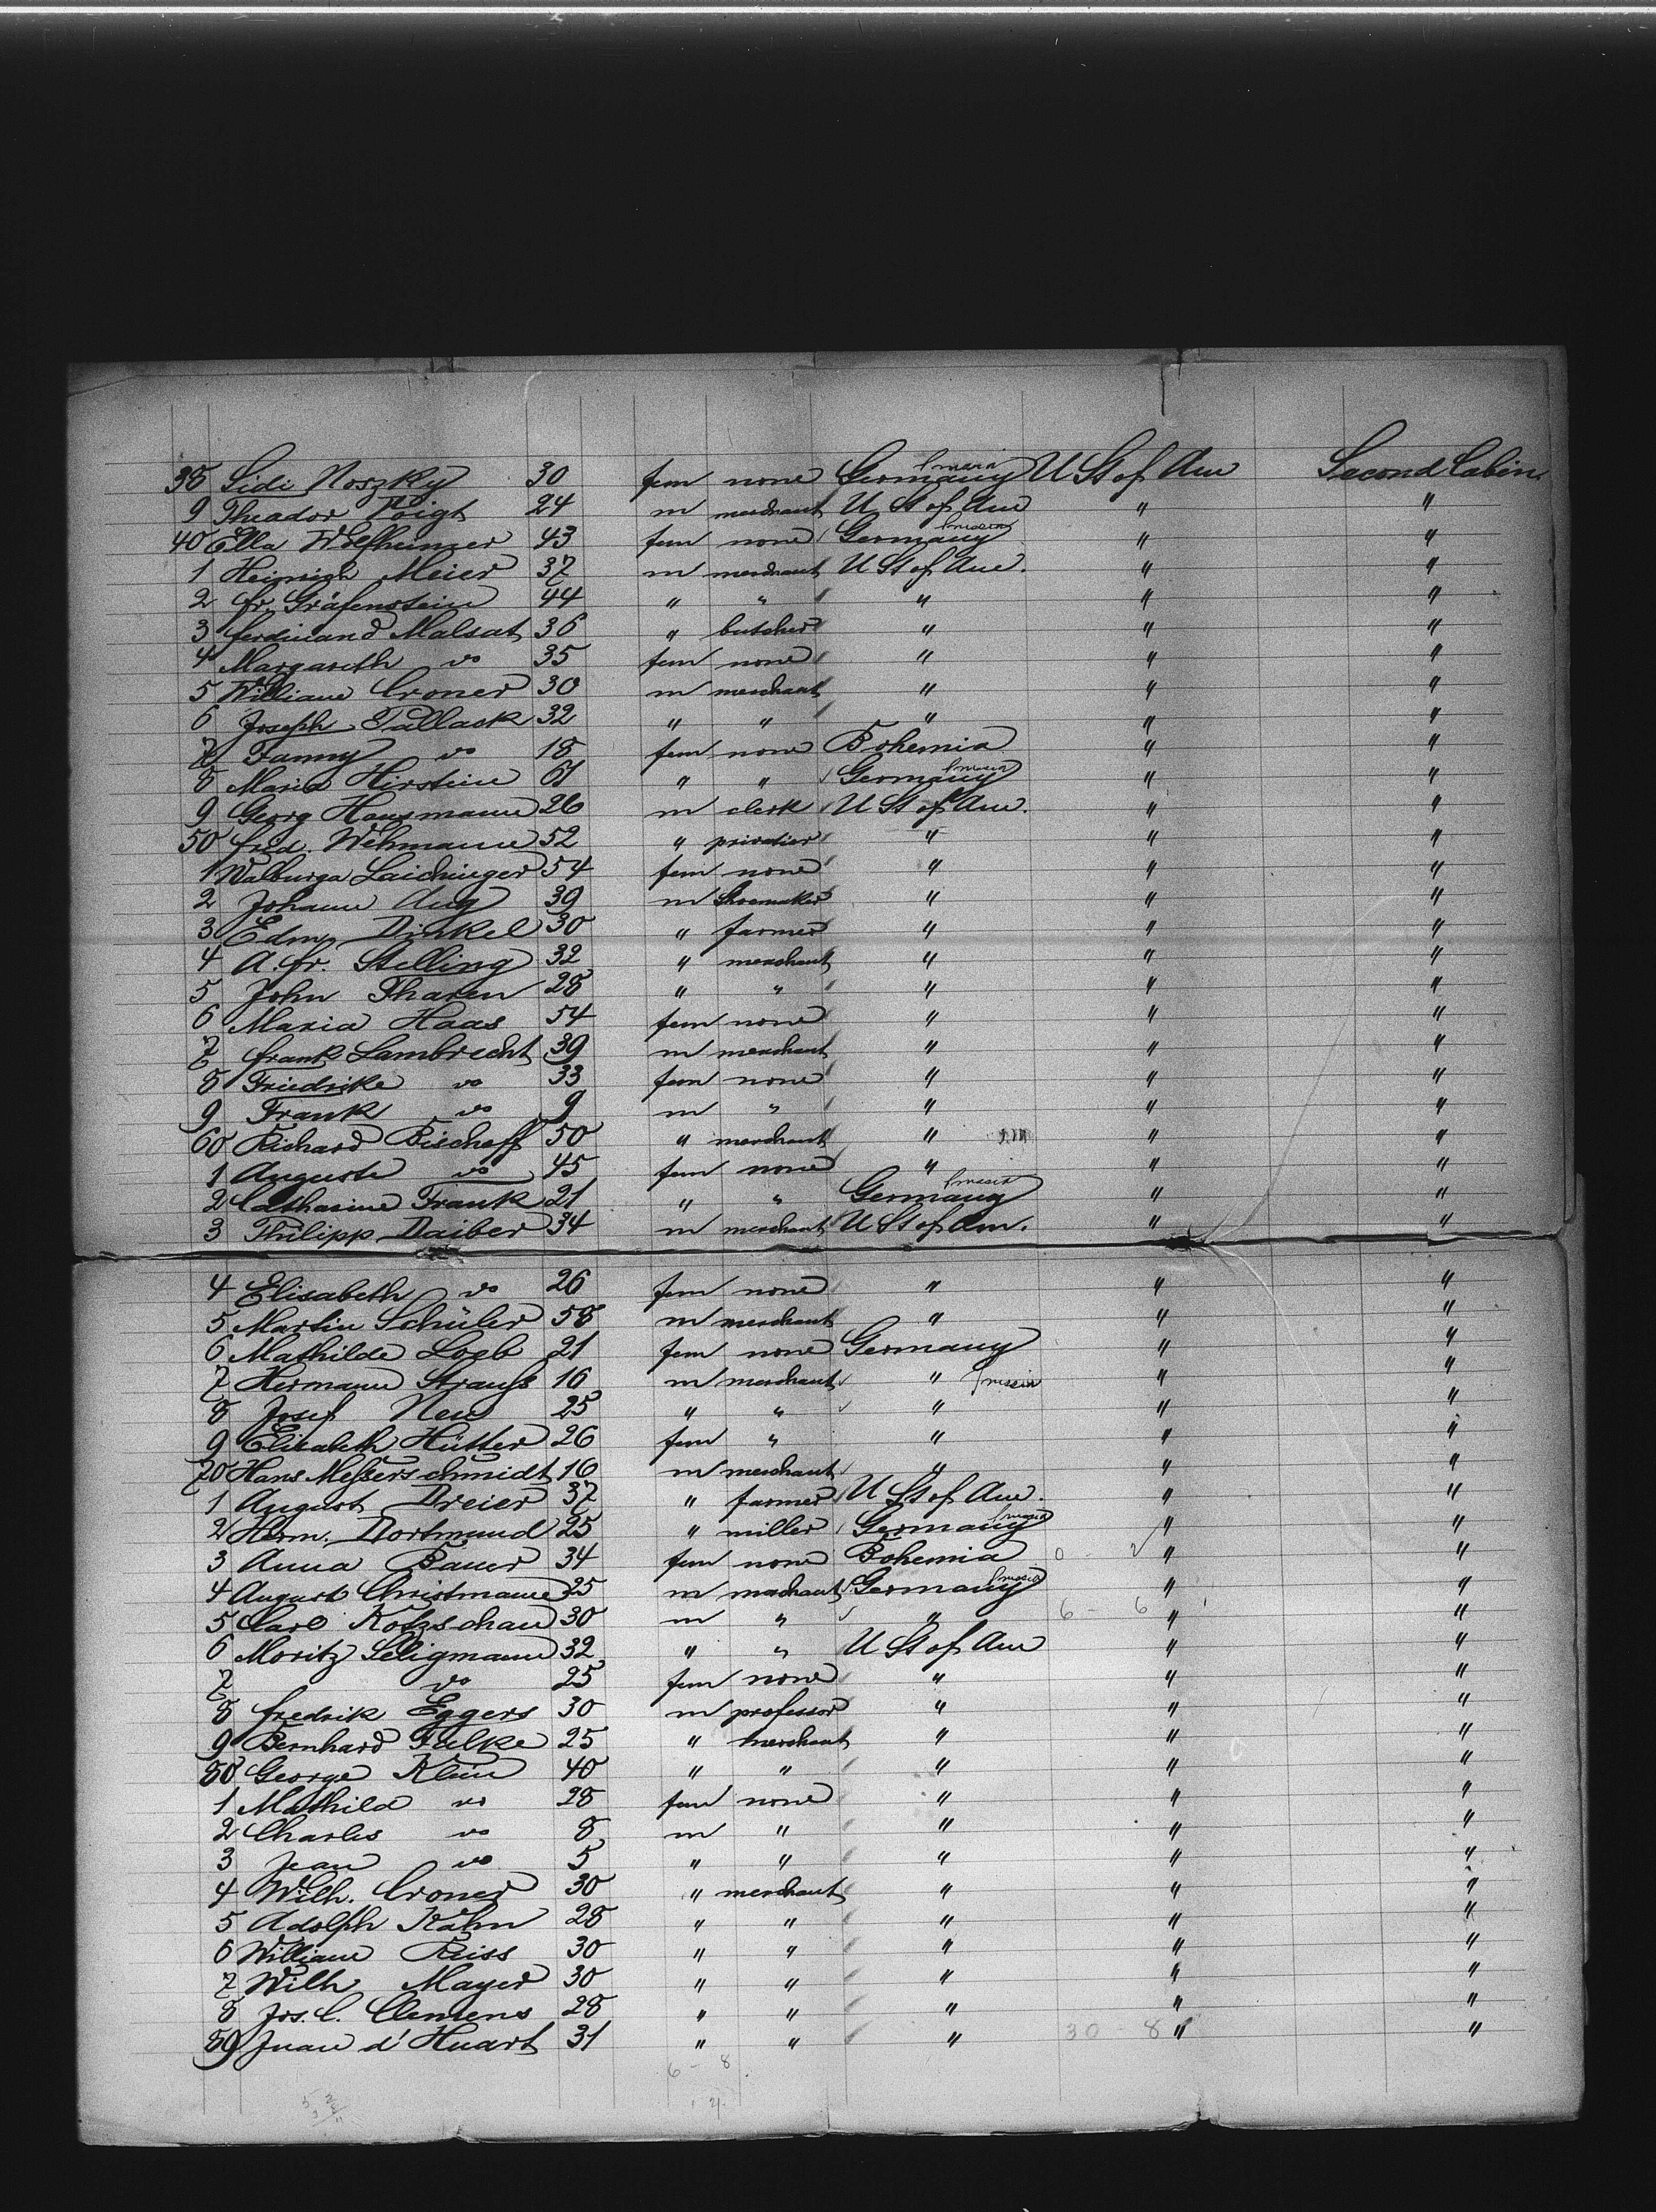 38 Sidi Noszky 30 fem none Germany Prussia U St of Am Second Cabin.
9 Theador Voigt 24 m merchant U St of Am " "
40 Ella Wolfhunger 43 fem none Germany Prussia " "
1 Heinrich Meier 37 m merchant U St of Am. " "
2 Fr. Gräfenstein 44 " " " " "
3 Ferdinand Malsat 36 " butcher " " "
4 Margareth do 35 fem none " " "
5 William Croner 30 m merchant " " "
6 Joseph Pollack 32 " " " " "
7 Fanny do 18 fem none Bohemia " "
8 Maria Hirstine 61 " " Germany Prussia " "
9 Georg Hausmann 26 m clerk U St of Am. " "
50 Fred. Wehmann 52 " privatier " " "
1 Walburga Laichinger 54 fem none " " "
2 Johann Aug 39 m Shoemaker " " "
3 Edm. Dinkel 30 " farmer " " "
4 A. Fr. Stelling 32 " merchant " " "
5 John Tharen 28 " " " " "
6 Maria Haas 54 fem none " " "
7 Frank Lambrecht 39 m merchant " " "
8 Friedrike do 33 fem none " " "
9 Frank do 9 m " " " "
60 Richard Bischoff 50 " merchant " " "
1 Auguste do 45 fem none " " "
2 Catharine Frank 21 " " Germany Prussia " "
3 Philipp Daiber 34 m merchant U St of Am. " "
4 Elisabeth do 26 fem none " " "
5 Martin Schüler 58 m merchant " " "
6 Mathilde Loeb 21 fem none Germany " "
7 Hermann Strauß 16 m merchant " Prussia " "
8 Josef Neu 25 " " " " "
9 Elisabeth Hütter 26 fem " " " "
70 Hans Meßerschmidt 16 m merchant " " "
1 August Dreier 37 " farmer U St of Am. " "
2 Herm. Dortmund 25 " miller Germany Prussia " "
3 Anna Bauer 34 fem none Bohemia " "
4 August Christmann 25 m merchant Germany Prussia " "
5 Carl Kotzschau 30 m " " 6 - 6 " "
6 Moritz Seligmann 32 " " U St of Am " "
7 do 25 fem none " " "
8 Fredrik Eggers 30 m professor " " "
9 Bernhard Falke 25 " merchant " " "
80 George Klein 40 " " " " "
1 Mathild do 28 fem none " " "
2 Charles do 8 m " " " "
3 Jean do 5 " " " " "
4 Wilh. Croner 30 " merchant " " "
5 Adolph Kahn 28 " " " " "
6 William Reiss 30 " " " " "
7 Wilh Mayer 30 " " " " "
8 Jos. C. Clemens 28 " " " " "
89 Juan d'Huart 31 " " " 30 - 8 " "
6 - 8